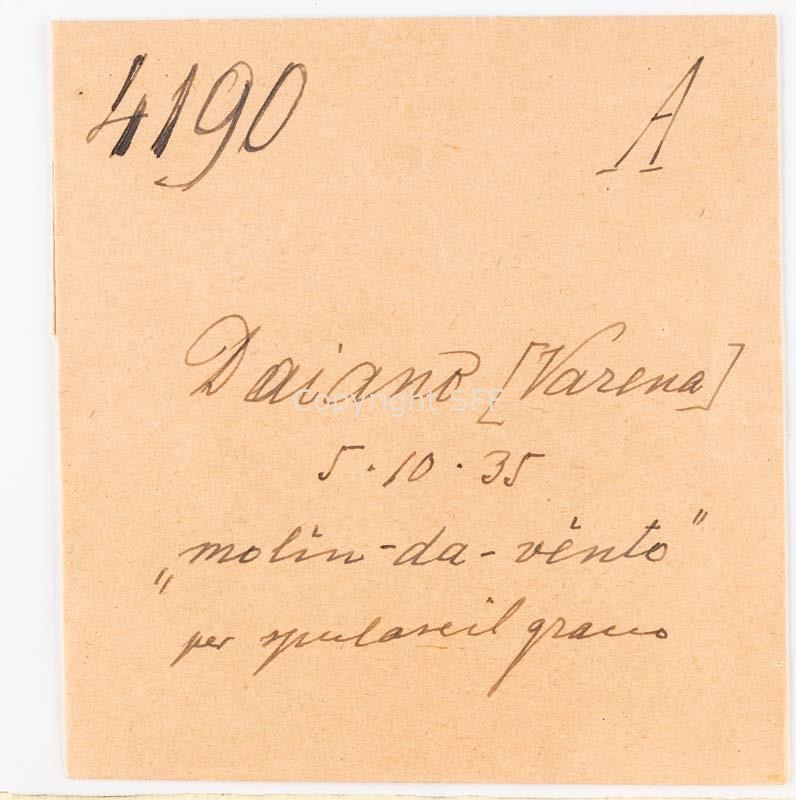 4190 A
Daiano [Varena]
Copyright SFF
5.10.35
„molin-da-vènto"
per spulare il grano